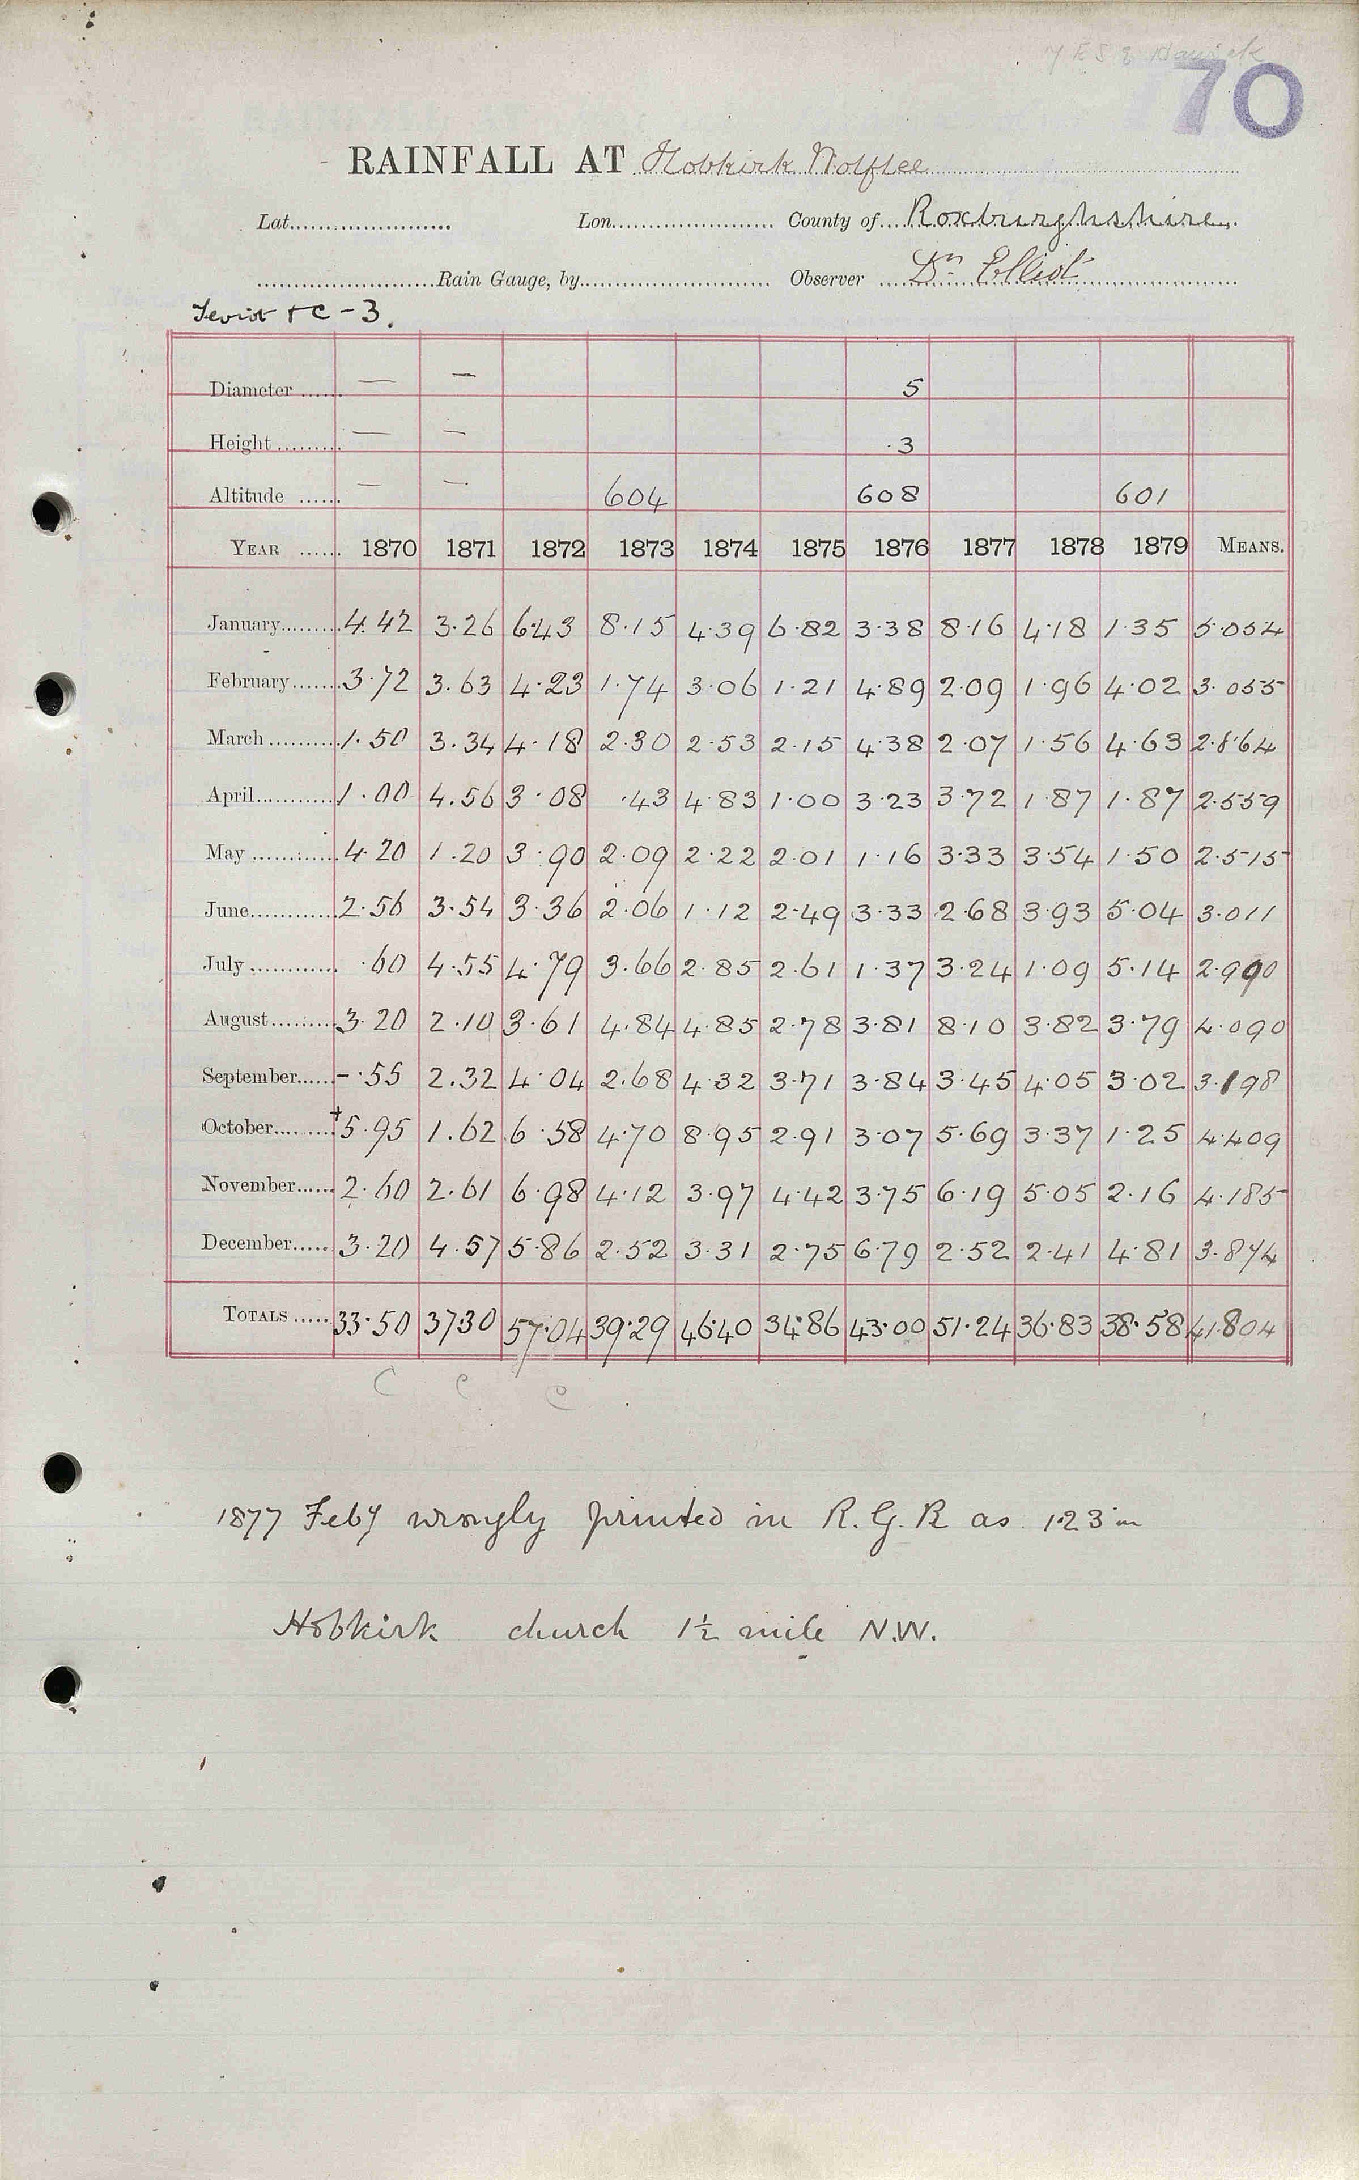 70
RAINFALL AT Hobkirk Wolflee
Lat. Lon. County of Roxburghshire
Rain Gauge, by Observer Dr. Elliot
Teviot + C - 3.
Diameter — — 5
Height — — .3
Altitude — — 604 608 601
YEAR 1870 1871 1872 1873 1874 1875 1876 1877 1878 1879 MEANS.
January 4.42 3.26 6.43 8.15 4.39 6.82 3.38 8.16 4.18 1.35 5.054
February 3.72 3.63 4.23 1.74 3.06 1.21 4.89 2.09 1.96 4.02 3.055
March 1.50 3.34 4.18 2.30 2.53 2.15 4.38 2.07 1.56 4.63 2.864
April 1.00 4.56 3.08 .43 4.83 1.00 3.23 3.72 1.87 1.87 2.559
May 4.20 1.20 3.90 2.09 2.22 2.01 1.16 3.33 3.54 1.50 2.515
June 2.56 3.54 3.36 2.06 1.12 2.49 3.33 2.68 3.93 5.04 3.011
July .60 4.55 4.79 3.66 2.85 2.61 1.37 3.24 1.09 5.14 2.990
August 3.20 2.10 3.61 4.84 4.85 2.78 3.81 8.10 3.82 3.79 4.090
September - .55 2.32 4.04 2.68 4.32 3.71 3.84 3.45 4.05 3.02 3.198
October +5.95 1.62 6.58 4.70 8.95 2.91 3.07 5.69 3.37 1.25 4.409
November 2.60 2.61 6.98 4.12 3.97 4.42 3.75 6.19 5.05 2.16 4.185
December 3.20 4.57 5.86 2.52 3.31 2.75 6.79 2.52 2.41 4.81 3.874
TOTALS 33.50 37.30 57.04 39.29 46.40 34.86 43.00 51.24 36.83 38.58 41.804
C C C
1877 Feby wrongly printed in R.G.R as 1.23 in
Hobkirk church 1½ mile N.W.